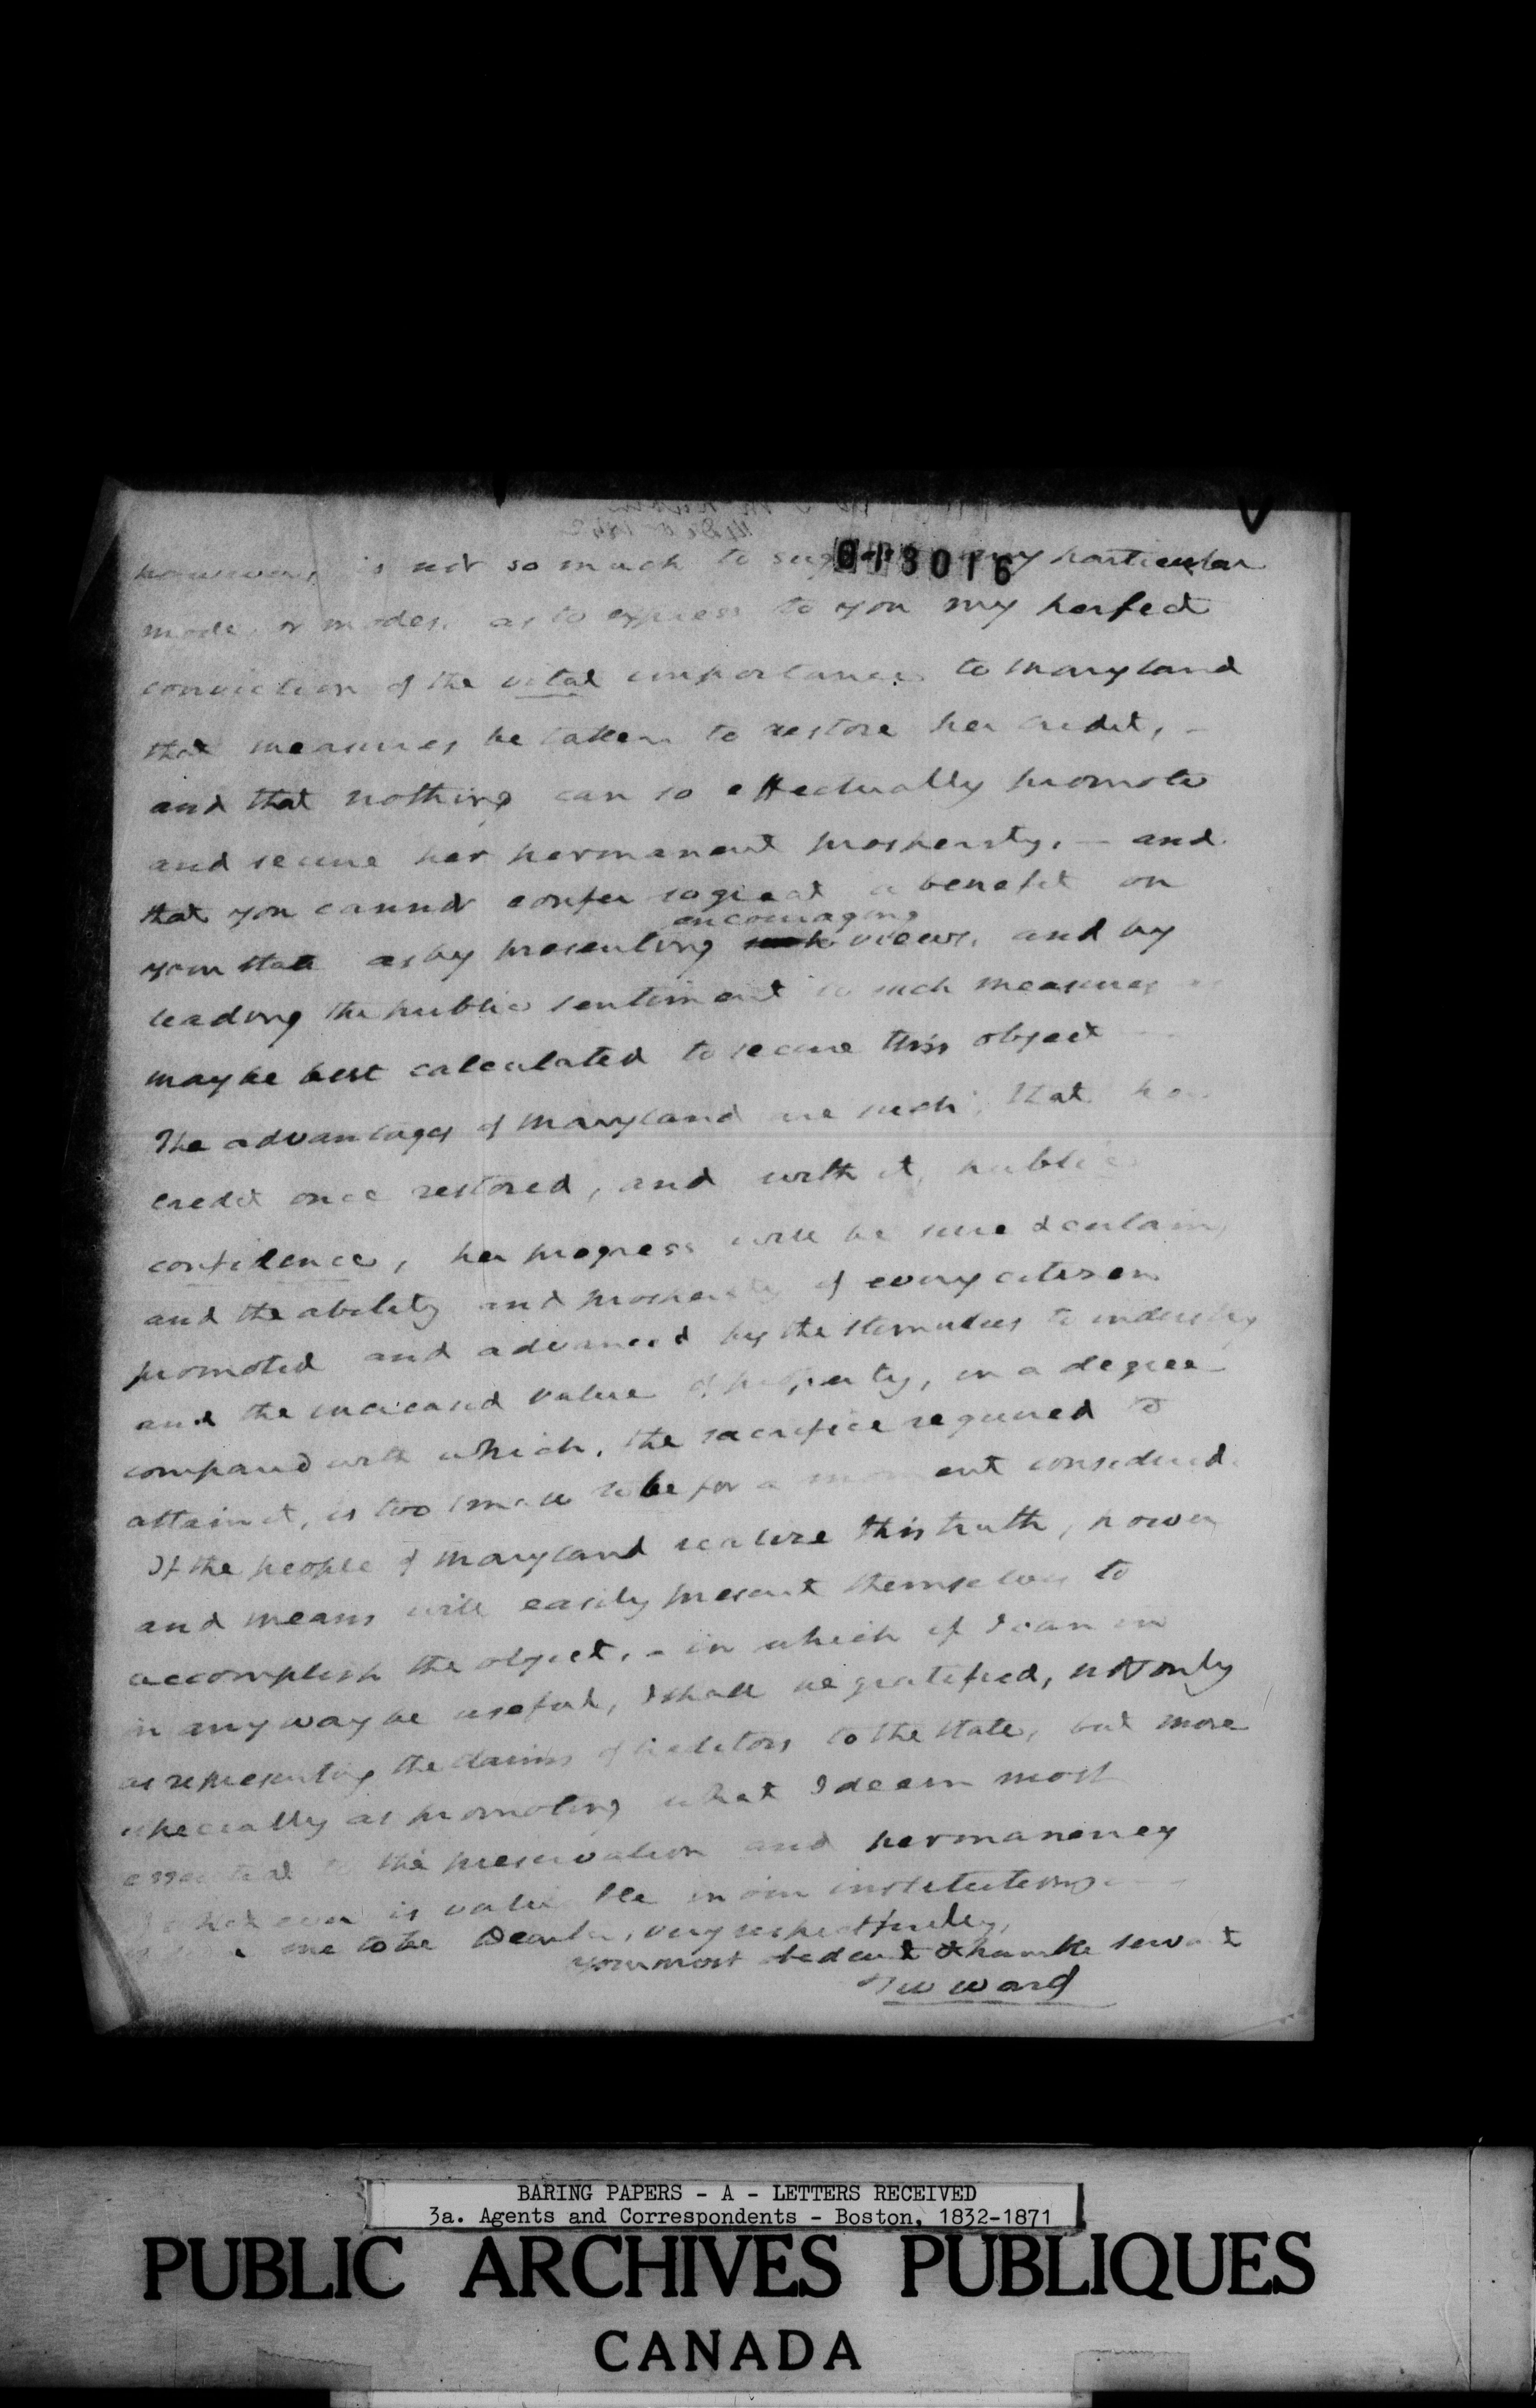 013016
however, is not so much to my particular
mode, or modes, as to express to you my perfect
conviction of the vital importance to Maryland
that measures be taken to restore her credit, -
and that nothing can so effectually promote
and secure her permanent prosperity, - and
that you cannot confer so great a benefit on
encouraging
your state as by presenting views, and by
leading the public sentiment to such measures as
may be best calculated to secure this object
The advantages of Maryland are such, that her
credit once restored, and with it, public
confidence, her progress will be sure & certain,
and the ability and prosperity of every citizen
promoted and advanced by the stimulus to industry
and the increased value of property, in a degree
compared with which, the sacrifice required to
attain it, is too small to be for a moment considered.
If the people of Maryland realize this truth, power
and means will easily present themselves to
accomplish the object, - in which if I can in
in any way be useful, I shall be gratified, not only
as representing the claims of creditors to the state, but more
especially as promoting what I deem most
essential to the preservation and permanency
of whatever is valuable in our institutions
me to be Dear Sir, very respectfully,
your most obedient & humble servant
T W Ward
BARING PAPERS - A - LETTERS RECEIVED
3a. Agents and Correspondents - Boston, 1832-1871
PUBLIC ARCHIVES PUBLIQUES
CANADA